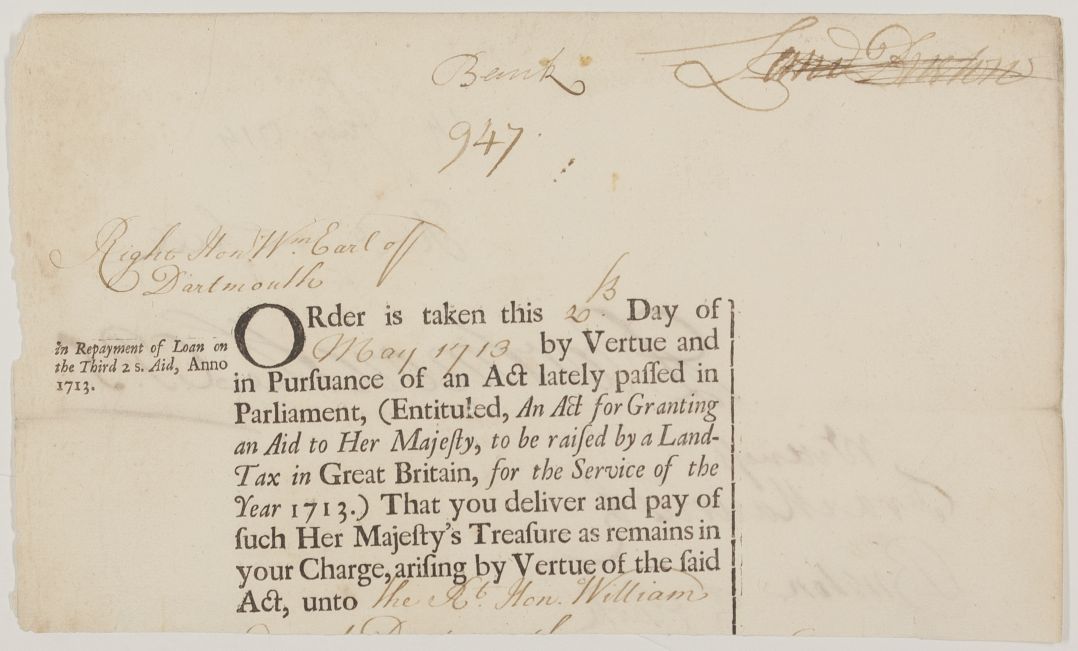 Bank
947.
Right Hon. Wm Earl of
Dartmouth
ORder is taken this 20th. Day of
May 1713 by Vertue and
in Repayment of Loan on
the Third 2 s. Aid, Anno
1713.
in Purſuance of an Act lately paſſed in
Parliament, (Entituled, An Act for Granting
an Aid to Her Majeſty, to be raiſed by a Land-
Tax in Great Britain, for the Service of the
Year 1713.) That you deliver and pay of
ſuch Her Majeſty's Treaſure as remains in
your Charge, ariſing by Vertue of the ſaid
Act, unto the Rt. Hon. William